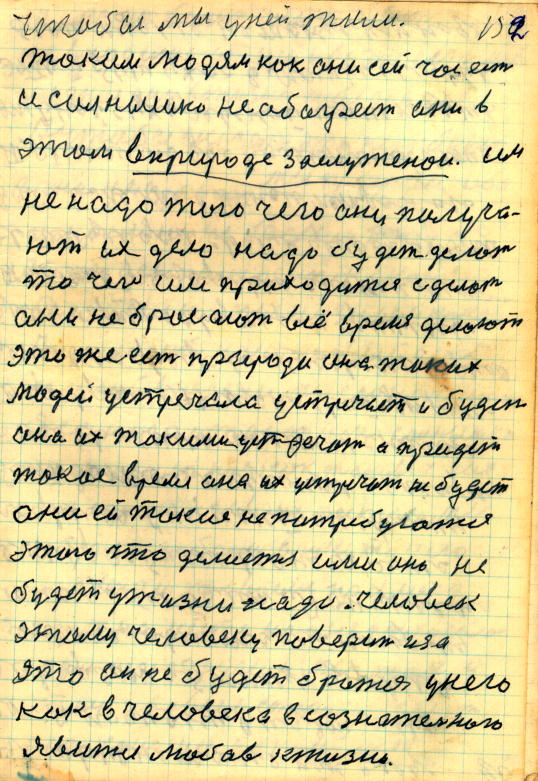 чтобы мы уней жили. 192
таким людям как они сей час ест
и солнышко не обогреет они в
этом вприроде заслуженои. им
не надо того чего они получа-
ют их дело надо будет делат
то чего им приходится сделат
они не бросают всё время делают
это же ест природа она таких
людей устречала устречает и будет
она их такими устречат а придет
такое время она их устречат не будет
они ей такие непотребуются
этого что делается ими оно не
будет ужизни надо. человек
этому человеку поверит иза
это он не будет братся унего
как в человека в сознателного
явится любов кжизни.